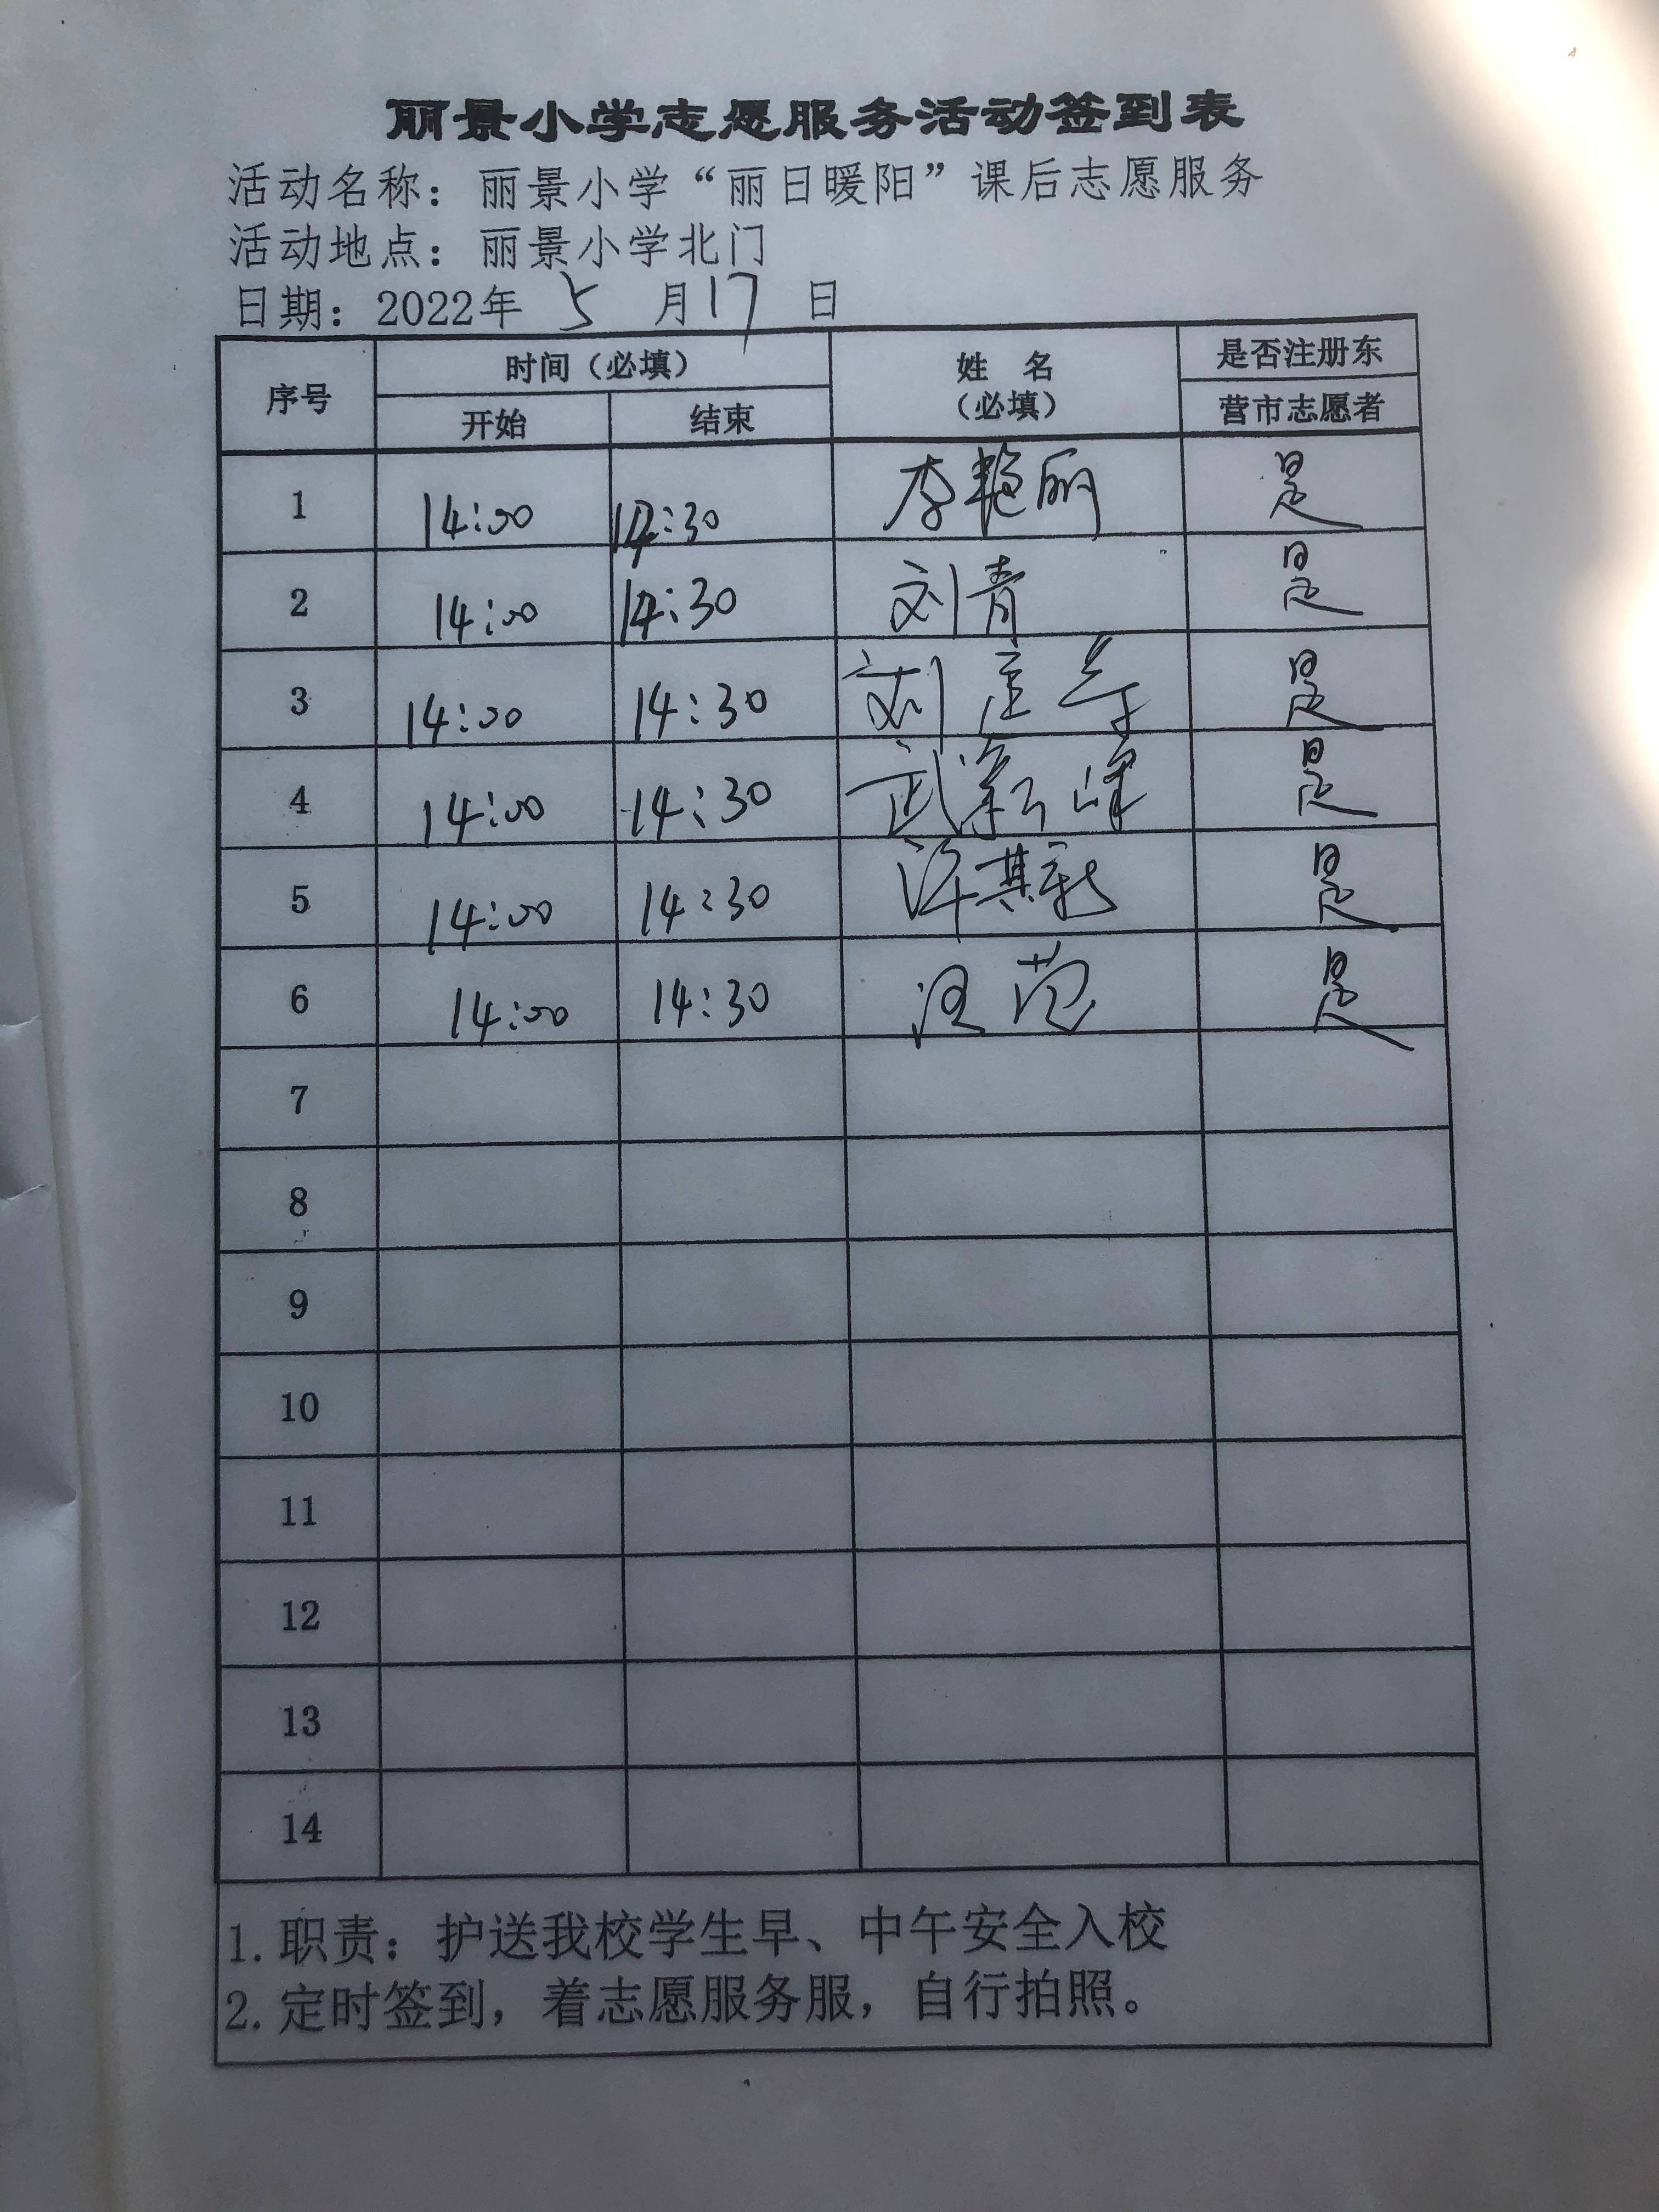 丽景小学志愿服务活动签到表
活动名称：丽景小学“丽日暖阳”课后志愿服务
活动地点：丽景小学北门
日期：2022年 5 月 17 日
序号 时间（必填） 姓 名（必填） 是否注册东营市志愿者
开始 结束
1 14:00 14:30 李艳丽 是
2 14:00 14:30 刘青 是
3 14:00 14:30 刘 是
4 14:00 14:30 武 峰 是
5 14:00 14:30 许其新 是
6 14:00 14:30 汪范 是
7
8
9
10
11
12
13
14
1. 职责：护送我校学生早、中午安全入校
2. 定时签到，着志愿服务服，自行拍照。